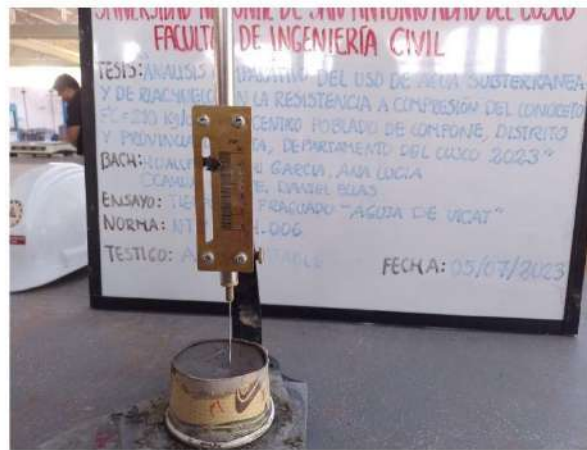 UNIVERSIDAD DE SAN ANTONIO ABAD DEL CUSCO
FACULTA DE INGENIERÍA CIVIL
TESIS: ANALISIS PARATIVO DEL USO DE AGUA SUBTERRANEA
Y DE RIACHUELO EN LA RESISTENCIA A COMPRESION DEL CONCRETO
F'C=210 CENTRO POBLADO DE COMPONE, DISTRITO
Y PROVINCIA TA, DEPARTAMENTO DEL CUSCO 2023"
BACH: GARCIA, ANA LUCIA
DANIEL ELIAS
ENSAYO: FRAGUADO "AGUJA DE VICAT"
NORMA: NT .006
TESTIGO: A TABLE FECHA: 05/07/2023